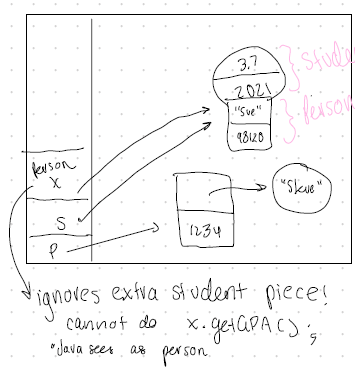 3.7
Student
2021
"Sue"
Person
98120
Person
X
"Steve"
S
1234
P
ignores extra student piece!
cannot do x.getGPA();
*Java sees as person